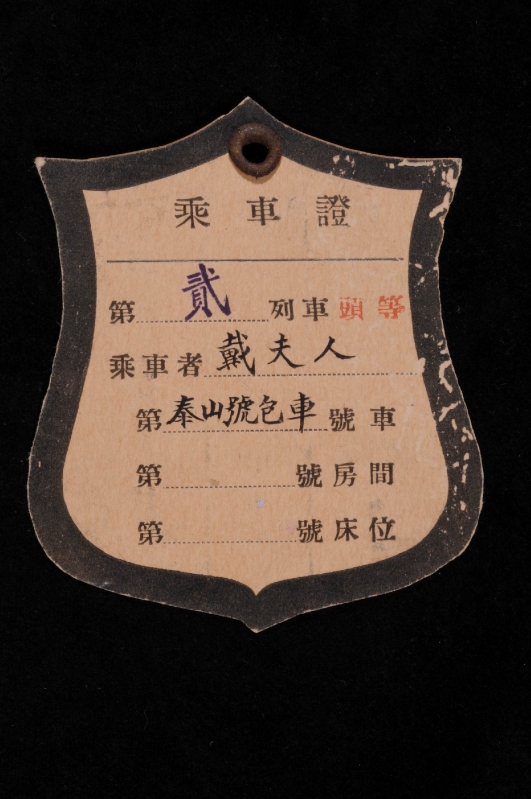 乘車證
第貳列車頭等
乘車者戴夫人
第泰山號包車號車
第號房間
第號床位